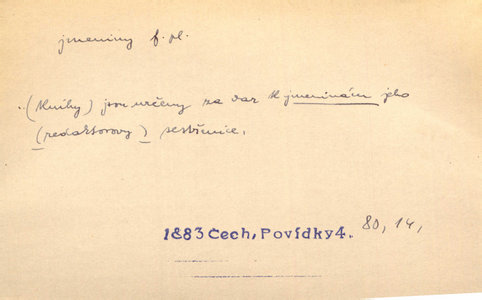 jmeniny f. pl.
..(Knihy) jsou určeny za dar k jmeninám jeho
(redaktorovy) sestřenice.
1883 Čech, Povídky 4. 80, 14,